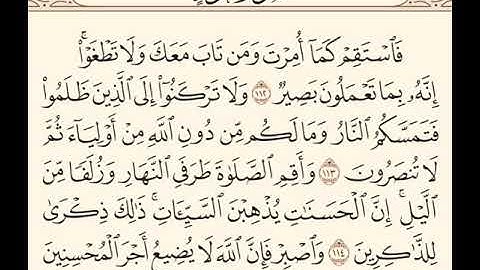 فَٱسْتَقِمْ كَمَآ أُمِرْتَ وَمَن تَابَ مَعَكَ وَلَا تَطْغَوْا۟ ۚ
إِنَّهُۥ بِمَا تَعْمَلُونَ بَصِيرٌ ١١٢ وَلَا تَرْكَنُوٓا۟ إِلَى ٱلَّذِينَ ظَلَمُوا۟
فَتَمَسَّكُمُ ٱلنَّارُ وَمَا لَكُم مِّن دُونِ ٱللَّهِ مِنْ أَوْلِيَآءَ ثُمَّ
لَا تُنصَرُونَ ١١٣ وَأَقِمِ ٱلصَّلَوٰةَ طَرَفَىِ ٱلنَّهَارِ وَزُلَفًا مِّنَ
ٱلَّيْلِ ۚ إِنَّ ٱلْحَسَنَـٰتِ يُذْهِبْنَ ٱلسَّيِّـَٔاتِ ۚ ذَٰلِكَ ذِكْرَىٰ
لِلذَّٰكِرِينَ ١١٤ وَٱصْبِرْ فَإِنَّ ٱللَّهَ لَا يُضِيعُ أَجْرَ ٱلْمُحْسِنِينَ